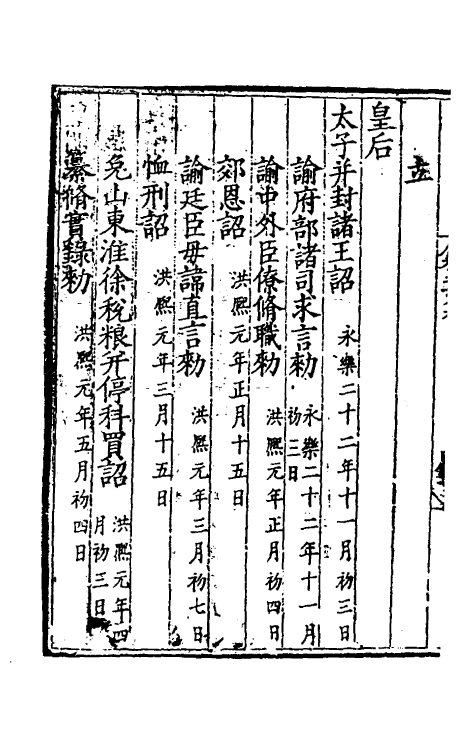 立
皇后
太子并封諸王詔 永樂二十二年十一月初三日
諭府部諸司求言勑 永樂二十二年十一月初三日
諭中外臣僚脩職勑 洪熈元年正月初四日
郊恩詔 洪熈元年正月十五日
諭廷臣毋諱直言勑 洪熈元年三月初七日
恤刑詔 洪熈元年三月十五日
免山東淮徐稅粮并停科買詔 洪熈元年四月初三日
纂脩實錄勑 洪熈元年五月初四日